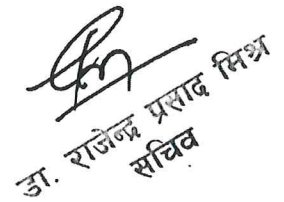 डा. राजेन्द्र प्रसाद मिश्र
सचिव